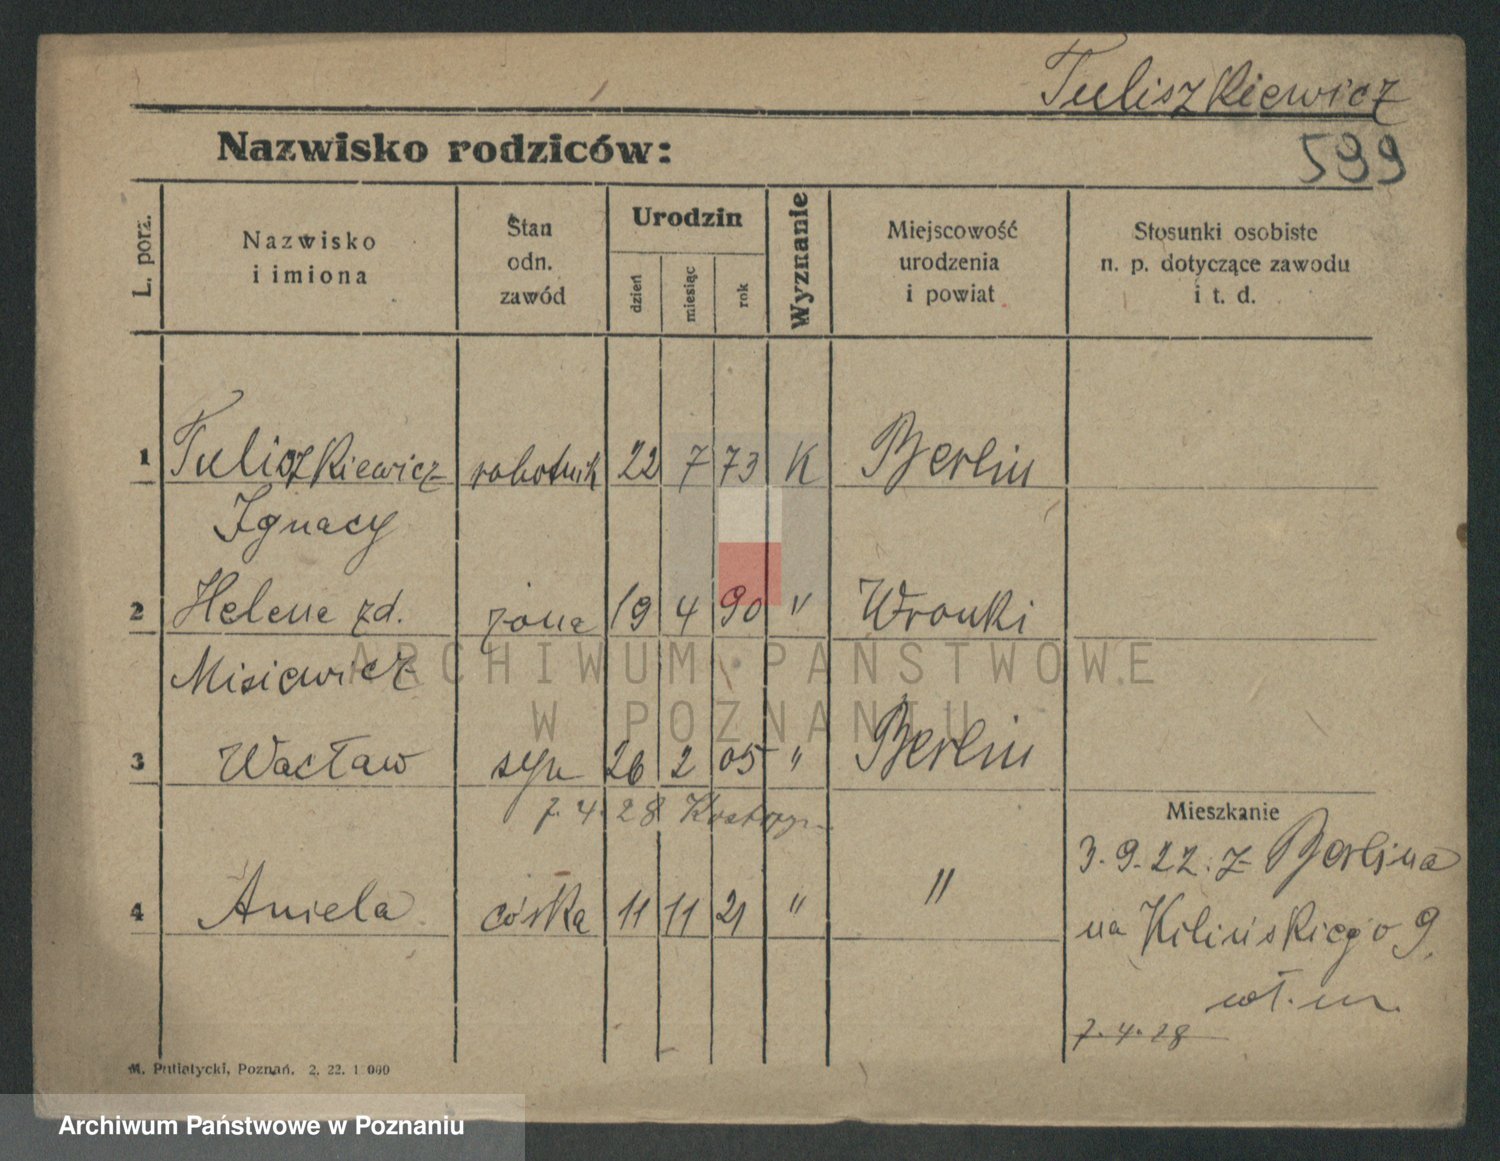 Tuliszkiewicz
Nazwisko rodziców:
599
L. porz.
Nazwisko
i imiona
Stan
odn.
zawód
Urodzin
dzień
miesiąc
rok
Wyznanie
Miejscowość
urodzenia
i powiat
Stosunki osobiste
n. p. dotyczące zawodu
i t. d.
1 Tuliszkiewicz robotnik 22 7 73 K Berlin
Ignacy
2 Helene zd. żona 19 4 90 " Wronki
Misiewicz
ARCHIWUM PAŃSTWOWE
W POZNANIU
3 Wacław syn 26 2 05 " Berlin
7. 4. 28 Kostrzyn
Mieszkanie
3. 9. 22. z Berlina
4 Aniela córka 11 11 21 " "
na Kilińskiego 9.
wł. m.
7. 4. 28
M. Putiatycki, Poznań. 2. 22. 1 000
Archiwum Państwowe w Poznaniu